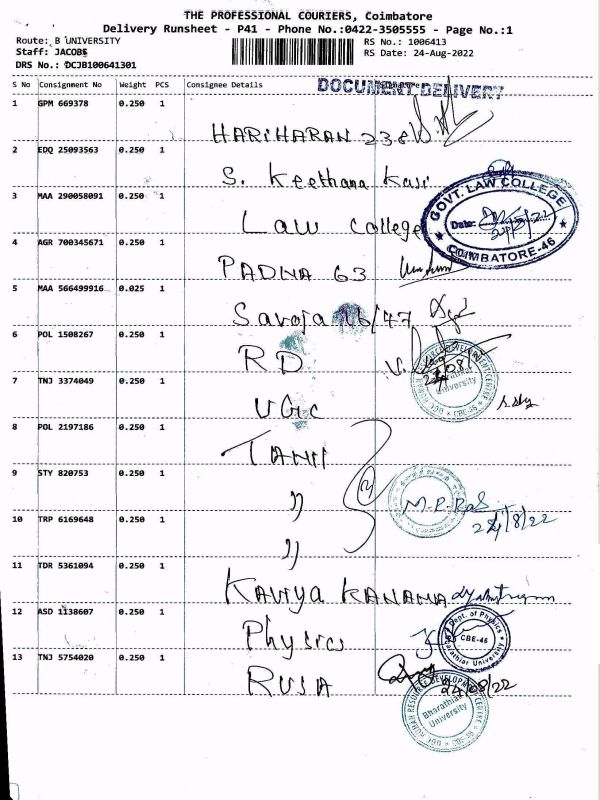 THE PROFESSIONAL COURIERS, Coimbatore
Delivery Runsheet - P41 - Phone No.:0422-3505555 - Page No.:1
Route: B UNIVERSITY
RS No.: 1006413
Staff: JACOBS
RS Date: 24-Aug-2022
DRS No.: DCJB100641301
S No Consignment No Weight PCS Consignee Details
DOCUMENT DELIVERY
1 GPM 669378 0.250 1 HARIHARAN
2 EDQ 25093563 0.250 1 S. Keethana
3 MAA 290058091 0.250 1 Law College
GOVT. LAW COLLEGE
Date:
COIMBATORE-46
4 AGR 700345671 0.250 1 PADNA 63
5 MAA 566499916 0.025 1 Savoja 16/47
6 POL 1508267 0.250 1 RD
7 TNJ 3374049 0.250 1 UGC
Bharathiar
University
CBE-46
8 POL 2197186 0.250 1 TANII
9 STY 820753 0.250 1 "
10 TRP 6169648 0.250 1 "
24/8/22
11 TDR 5361094 0.250 1 KAVIYA KANAMA
12 ASD 1138607 0.250 1 Physics
Dept. of Physics
CBE-46
Bharathiar University
13 TNJ 5754020 0.250 1 RUSA
24/08/22
HUMAN RESOURCE DEVELOPMENT CENTRE
Bharathiar
University
CBE-46